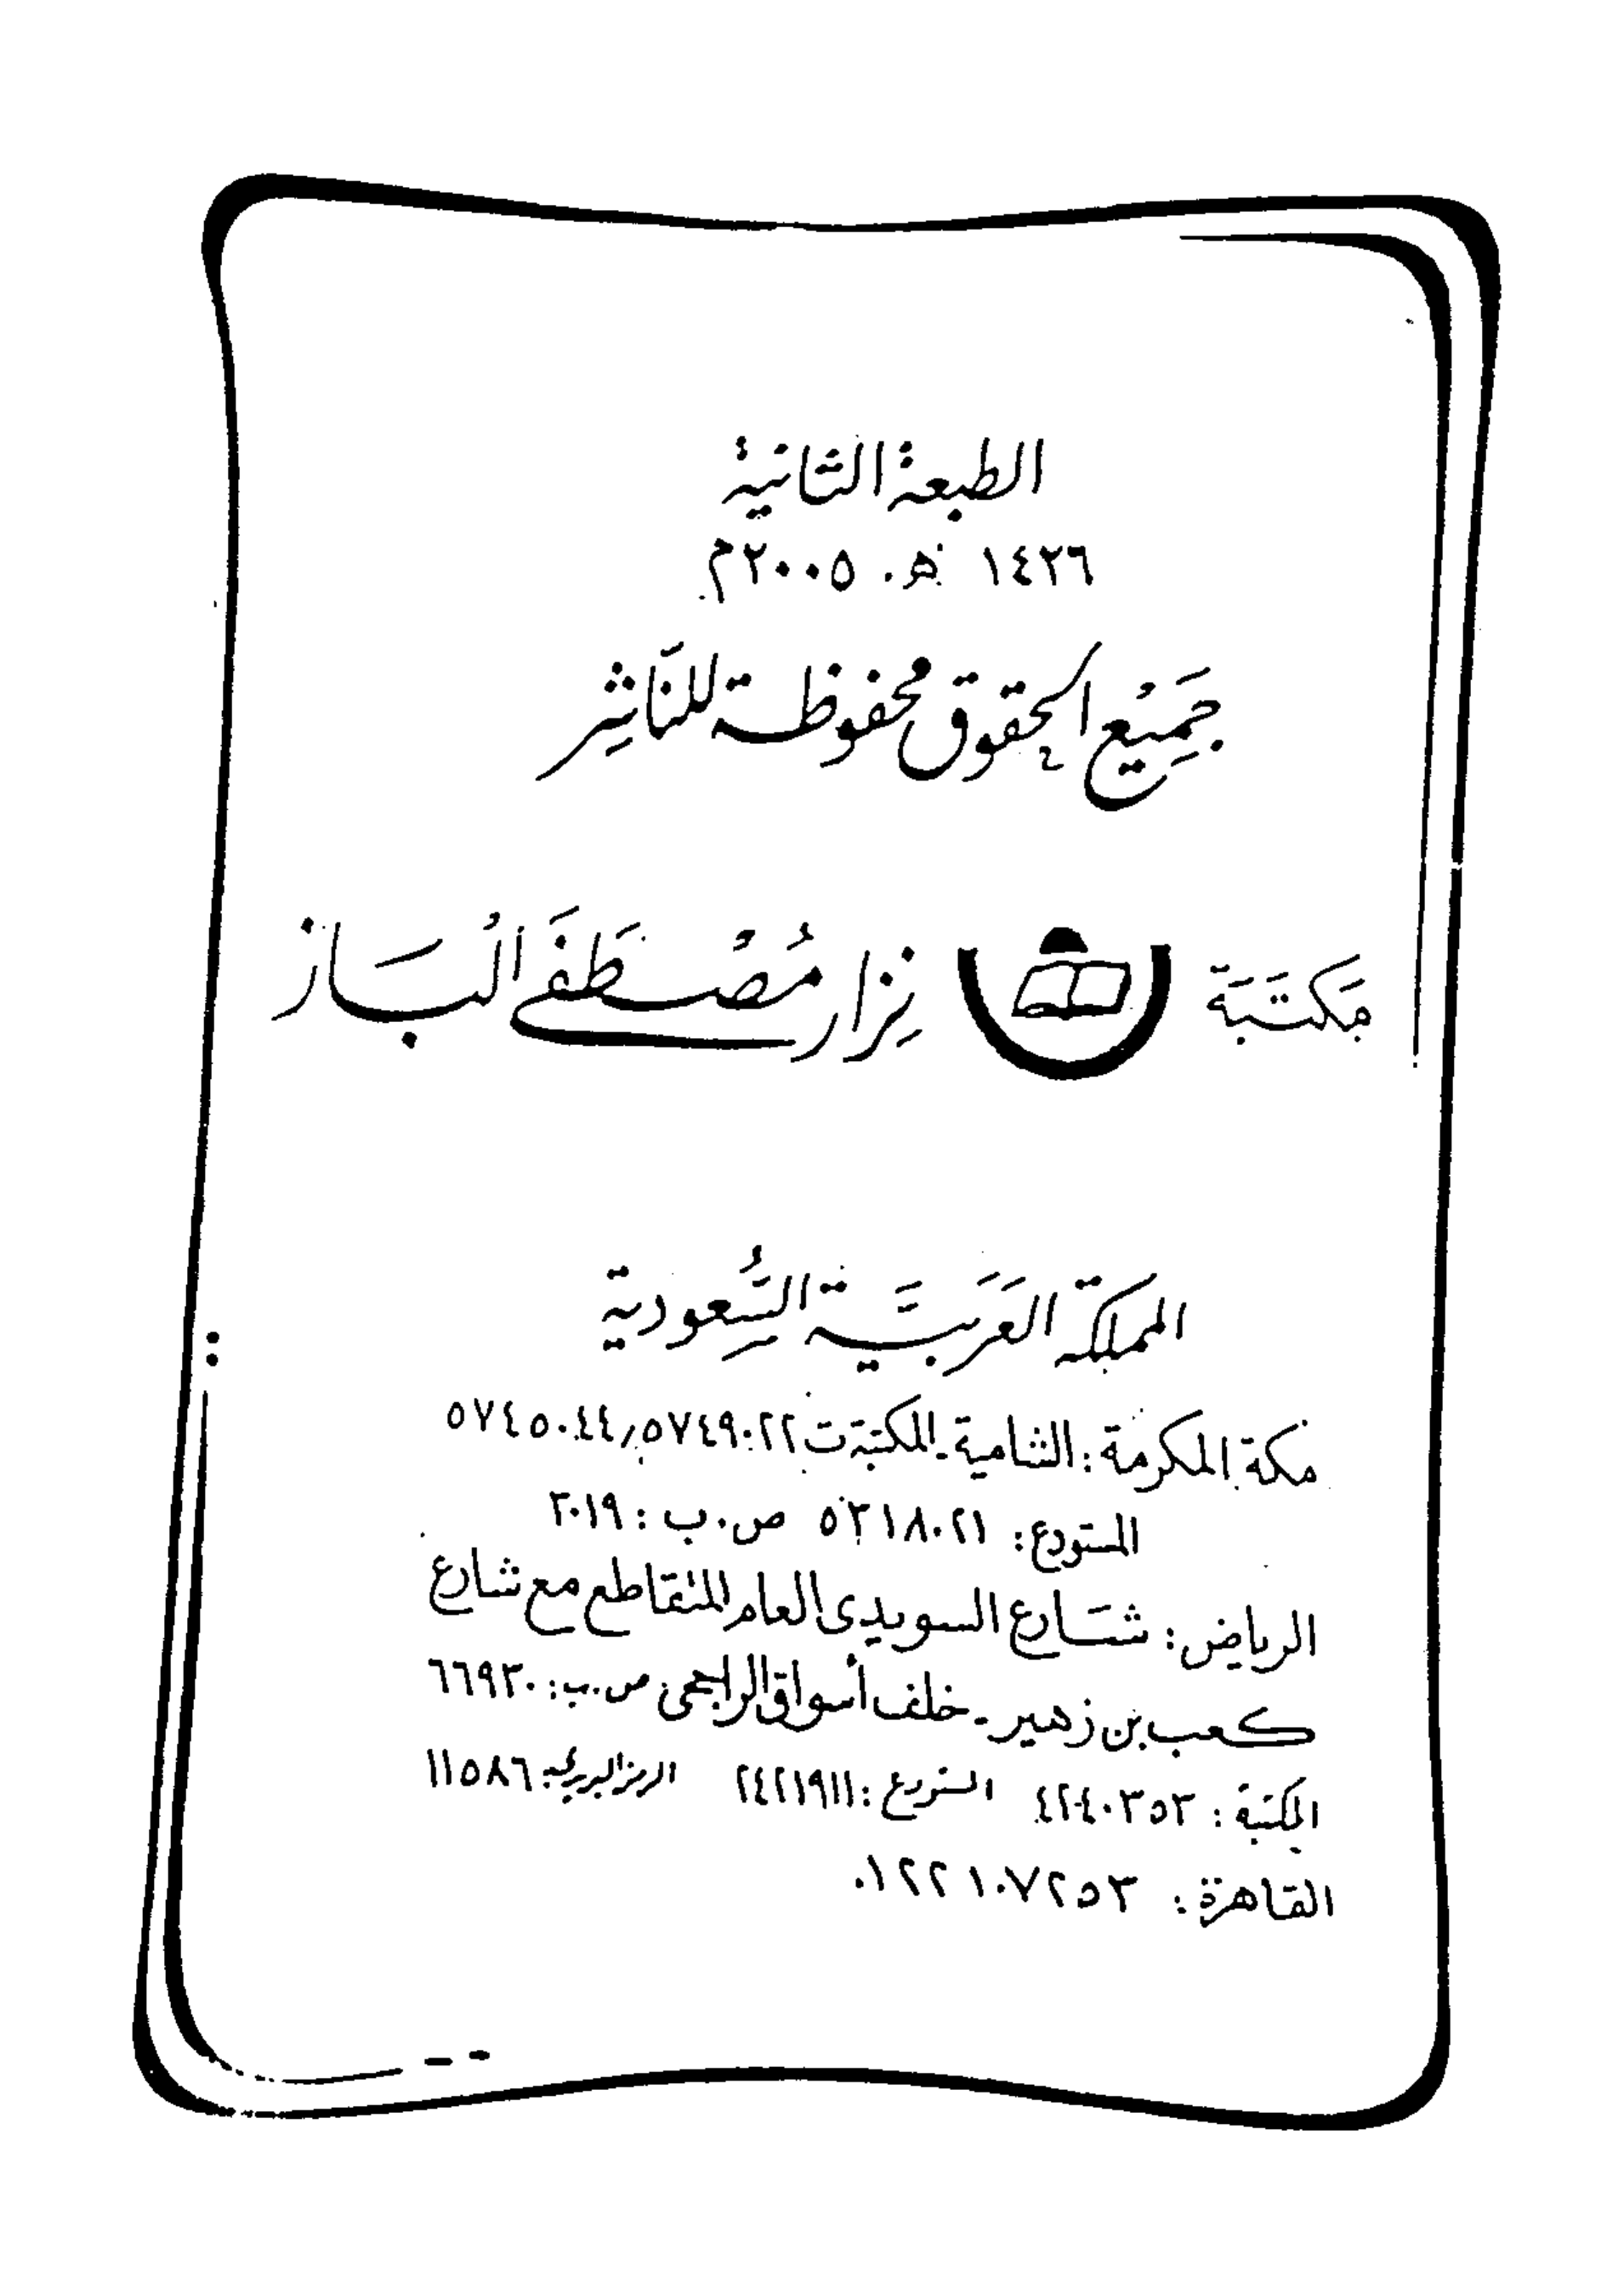 الطبعة الثانية
١٤٢٦ هـ. ٢٠٠٥م
جَمِيْع الحقوق محفوظة للنَّاشِر
مَكتَبَة نِزار مُصْطَفَى البَاز
المملكة العَرَبيَّة السُّعودية
مكة المكرمة: الشامية-المكتبة ت ٥٧٤٩٠٢٢/٥٧٤٥٠٤٤
المستودع: ٥٣١٨٠٢١ ص.ب: ٢٠١٩
الرياض: شَارع السويدى العام المتقاطع مع شارع
كعب بن زهير - خلف أسواق الراجحى ص.ب: ٦٦٩٣٠
المكتبة: ٤٢٤٠٣٥٣ المستودع: ٢٤٢١٩١١ الرمز البريدى: ١١٥٨٦
القاهرة: ٠١٢٢١٠٧٢٥٣